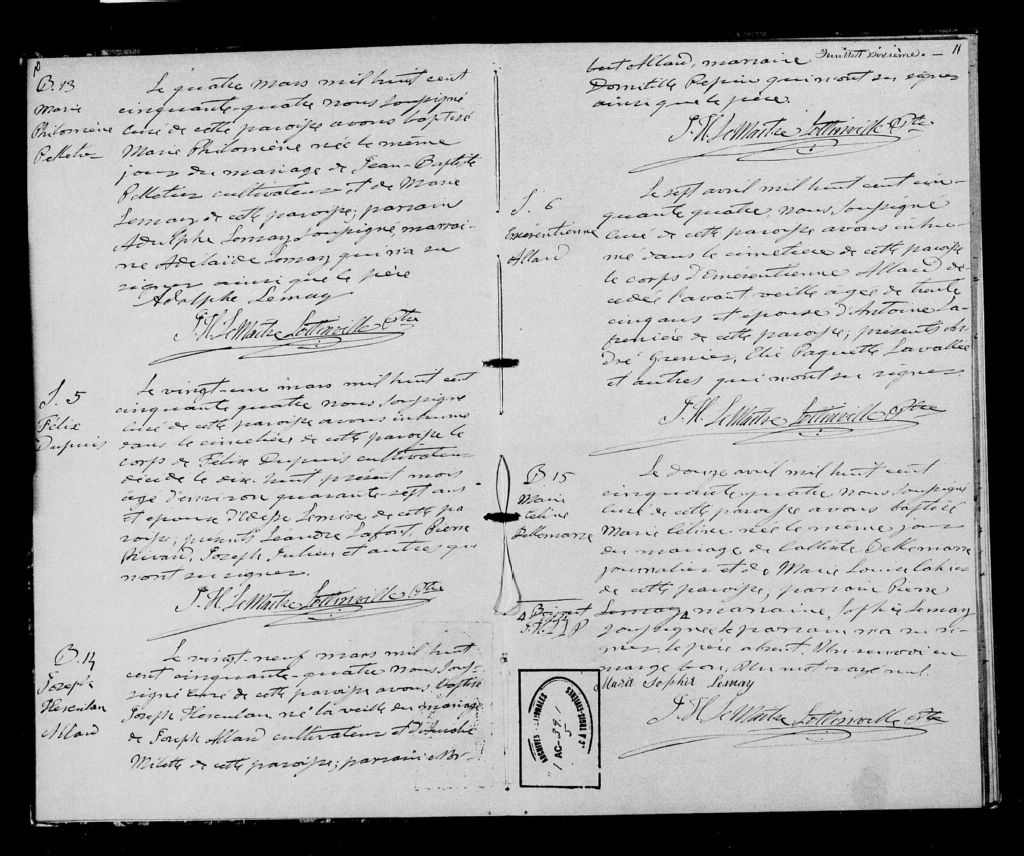 B. 13
Marie
Philomène
Pelletier
Le quatre mars mil huit cent
cinquante-quatre nous soussigné
curé de cette paroisse avons baptisé
Marie Philomène née le même
jour du mariage de Jean-Baptiste
Pelletier cultivateur et de Marie
Lemay de cette paroisse; parrain
Adolphe Lemay soussigné marrai-
ne Adelaide Lemay qui n'a su
signer ainsi que le père
Adolphe Lemay
J. H. LeMaitre Lottinville Ptre
S. 5
Félix
Dupuis
Le vingt-un mars mil huit cent
cinquante quatre nous soussigné
curé de cette paroisse avons inhumé
dans le cimetière de cette paroisse le
corps de Félix Dupuis cultivateur
décédé le dix-huit présent mois
agé d'environ quarante-sept ans
et epoux d'Edesse Lemire de cette pa
roisse; présents Leandre Lafort, Pierre
Rivard, Joseph Julien et autres qui
n'ont su signer.
J. H. LeMaitre Lottinville Ptre
B. 14
Joseph
Herculan
Allard
Le vingt-neuf mars mil huit
cent cinquante-quatre nous sous-
signé curé de cette paroisse avons baptisé
Joseph Herculan né la veille du mariage
de Joseph Allard cultivateur et
Milette de cette paroisse; parrain Nor-
Feuillet dixième. 11
bert Allard, marraine
Domitille Pepin qui n'ont su signer
ainsi que le père.
J. H. LeMaitre Lottinville Ptre
S. 6
Emérentienne
Allard
Le sept avril mil huit cent cin-
quante quatre, nous soussigné
curé de cette paroisse avons inhu-
mé dans le cimetière de cette paroisse
le corps d'Emérentienne Allard dé-
cédée l'avant veille agée de trente
cinq ans et épouse d'Antoine La-
frenière de cette paroisse; présents An-
dré Grenier, Elie Paquette Lavallée
et autres qui n'ont su signer.
J. H. LeMaitre Lottinville Ptre
B 15
Marie
Celina
Bellemarre
Le douze avril mil huit cent
cinquante-quatre nous soussigné
curé de cette paroisse avons baptisé
Marie Celina née le même jour
du mariage de Calixte Bellemarre
journalier et de Marie Louise
de cette paroisse, parrain Pierre
Lemay marraine, Sophie Lemay
soussignée le parrain n'a su si-
gner le père absent. Un renvoi en
marge bon, Un mot rayé nul.
Marie Sophie Lemay
J. H. LeMaitre Lottinville Ptre
ARCHIVES NATIONALES
AC-39.1
5
TROIS-RIVIERES P.Q.